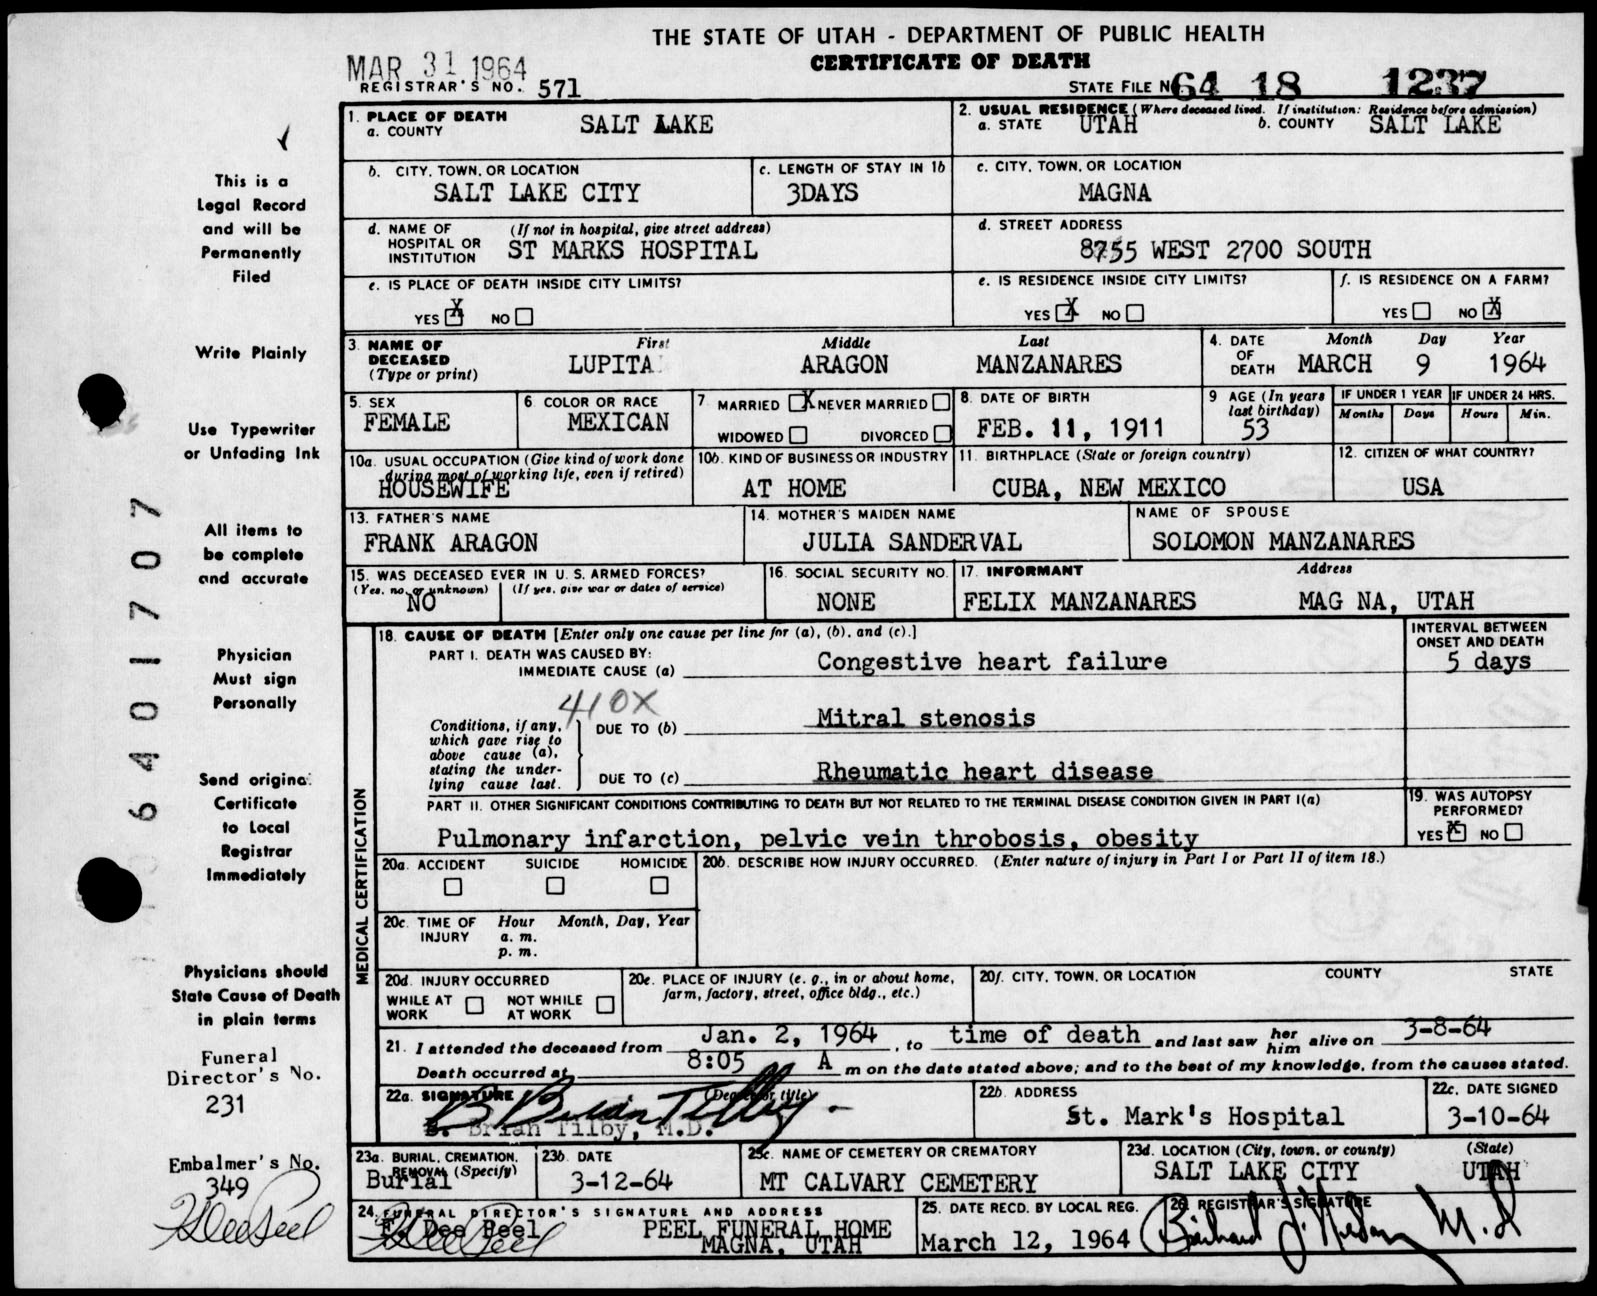 THE STATE OF UTAH - DEPARTMENT OF PUBLIC HEALTH
CERTIFICATE OF DEATH
MAR 31 1964
REGISTRAR'S NO. 571
STATE FILE NO 64 18 1237
This is a
Legal Record
and will be
Permanently
Filed
Write Plainly
Use Typewriter
or Unfading Ink
All items to
be complete
and accurate
Physician
Must sign
Personally
Send original
Certificate
to Local
Registrar
Immediately
Physicians should
State Cause of Death
in plain terms
Funeral
Director's No.
231
Embalmer's No.
349
6401707
1. PLACE OF DEATH
a. COUNTY SALT LAKE
2. USUAL RESIDENCE (Where deceased lived. If institution: Residence before admission)
a. STATE UTAH b. COUNTY SALT LAKE
b. CITY, TOWN, OR LOCATION
SALT LAKE CITY
c. LENGTH OF STAY IN 1b
3DAYS
c. CITY, TOWN, OR LOCATION
MAGNA
d. NAME OF HOSPITAL OR INSTITUTION (If not in hospital, give street address)
ST MARKS HOSPITAL
d. STREET ADDRESS
8755 WEST 2700 SOUTH
e. IS PLACE OF DEATH INSIDE CITY LIMITS?
YES X NO
e. IS RESIDENCE INSIDE CITY LIMITS?
YES X NO
f. IS RESIDENCE ON A FARM?
YES NO X
3. NAME OF DECEASED (Type or print)
First Middle Last
LUPITA ARAGON MANZANARES
4. DATE OF DEATH
Month Day Year
MARCH 9 1964
5. SEX
FEMALE
6 COLOR OR RACE
MEXICAN
7 MARRIED X NEVER MARRIED
WIDOWED DIVORCED
8. DATE OF BIRTH
FEB. 11, 1911
9 AGE (In years last birthday)
53
IF UNDER 1 YEAR
Months Days
IF UNDER 24 HRS.
Hours Min.
10a. USUAL OCCUPATION (Give kind of work done during most of working life, even if retired)
HOUSEWIFE
10b. KIND OF BUSINESS OR INDUSTRY
AT HOME
11. BIRTHPLACE (State or foreign country)
CUBA, NEW MEXICO
12. CITIZEN OF WHAT COUNTRY?
USA
13. FATHER'S NAME
FRANK ARAGON
14. MOTHER'S MAIDEN NAME
JULIA SANDERVAL
NAME OF SPOUSE
SOLOMON MANZANARES
15. WAS DECEASED EVER IN U. S. ARMED FORCES?
(Yes, no, or unknown) (If yes, give war or dates of service)
NO
16. SOCIAL SECURITY NO.
NONE
17. INFORMANT Address
FELIX MANZANARES MAG NA, UTAH
MEDICAL CERTIFICATION
18. CAUSE OF DEATH [Enter only one cause per line for (a), (b), and (c).]
INTERVAL BETWEEN ONSET AND DEATH
PART I. DEATH WAS CAUSED BY:
IMMEDIATE CAUSE (a) Congestive heart failure 5 days
410X
Conditions, if any, which gave rise to above cause (a), stating the underlying cause last.
DUE TO (b) Mitral stenosis
DUE TO (c) Rheumatic heart disease
PART II. OTHER SIGNIFICANT CONDITIONS CONTRIBUTING TO DEATH BUT NOT RELATED TO THE TERMINAL DISEASE CONDITION GIVEN IN PART I(a)
Pulmonary infarction, pelvic vein throbosis, obesity
19. WAS AUTOPSY PERFORMED?
YES X NO
20a. ACCIDENT SUICIDE HOMICIDE
20b. DESCRIBE HOW INJURY OCCURRED. (Enter nature of injury in Part I or Part II of item 18.)
20c. TIME OF INJURY Hour Month, Day, Year
a. m.
p. m.
20d. INJURY OCCURRED
WHILE AT WORK NOT WHILE AT WORK
20e. PLACE OF INJURY (e. g., in or about home, farm, factory, street, office bldg., etc.)
20f. CITY, TOWN, OR LOCATION COUNTY STATE
21. I attended the deceased from Jan. 2, 1964, to time of death and last saw her him alive on 3-8-64
Death occurred at 8:05 A m on the date stated above; and to the best of my knowledge, from the causes stated.
22a. SIGNATURE (Degree or title)
B Brian Tilby
B. Brian Tilby, M.D.
22b. ADDRESS
St. Mark's Hospital
22c. DATE SIGNED
3-10-64
23a. BURIAL, CREMATION, REMOVAL (Specify)
Burial
23b. DATE
3-12-64
23c. NAME OF CEMETERY OR CREMATORY
MT CALVARY CEMETERY
23d. LOCATION (City, town, or county) (State)
SALT LAKE CITY UTAH
24. FUNERAL DIRECTOR'S SIGNATURE AND ADDRESS
E. Dee Peel PEEL FUNERAL HOME
MAGNA, UTAH
25. DATE RECD. BY LOCAL REG.
March 12, 1964
26. REGISTRAR'S SIGNATURE
M.D